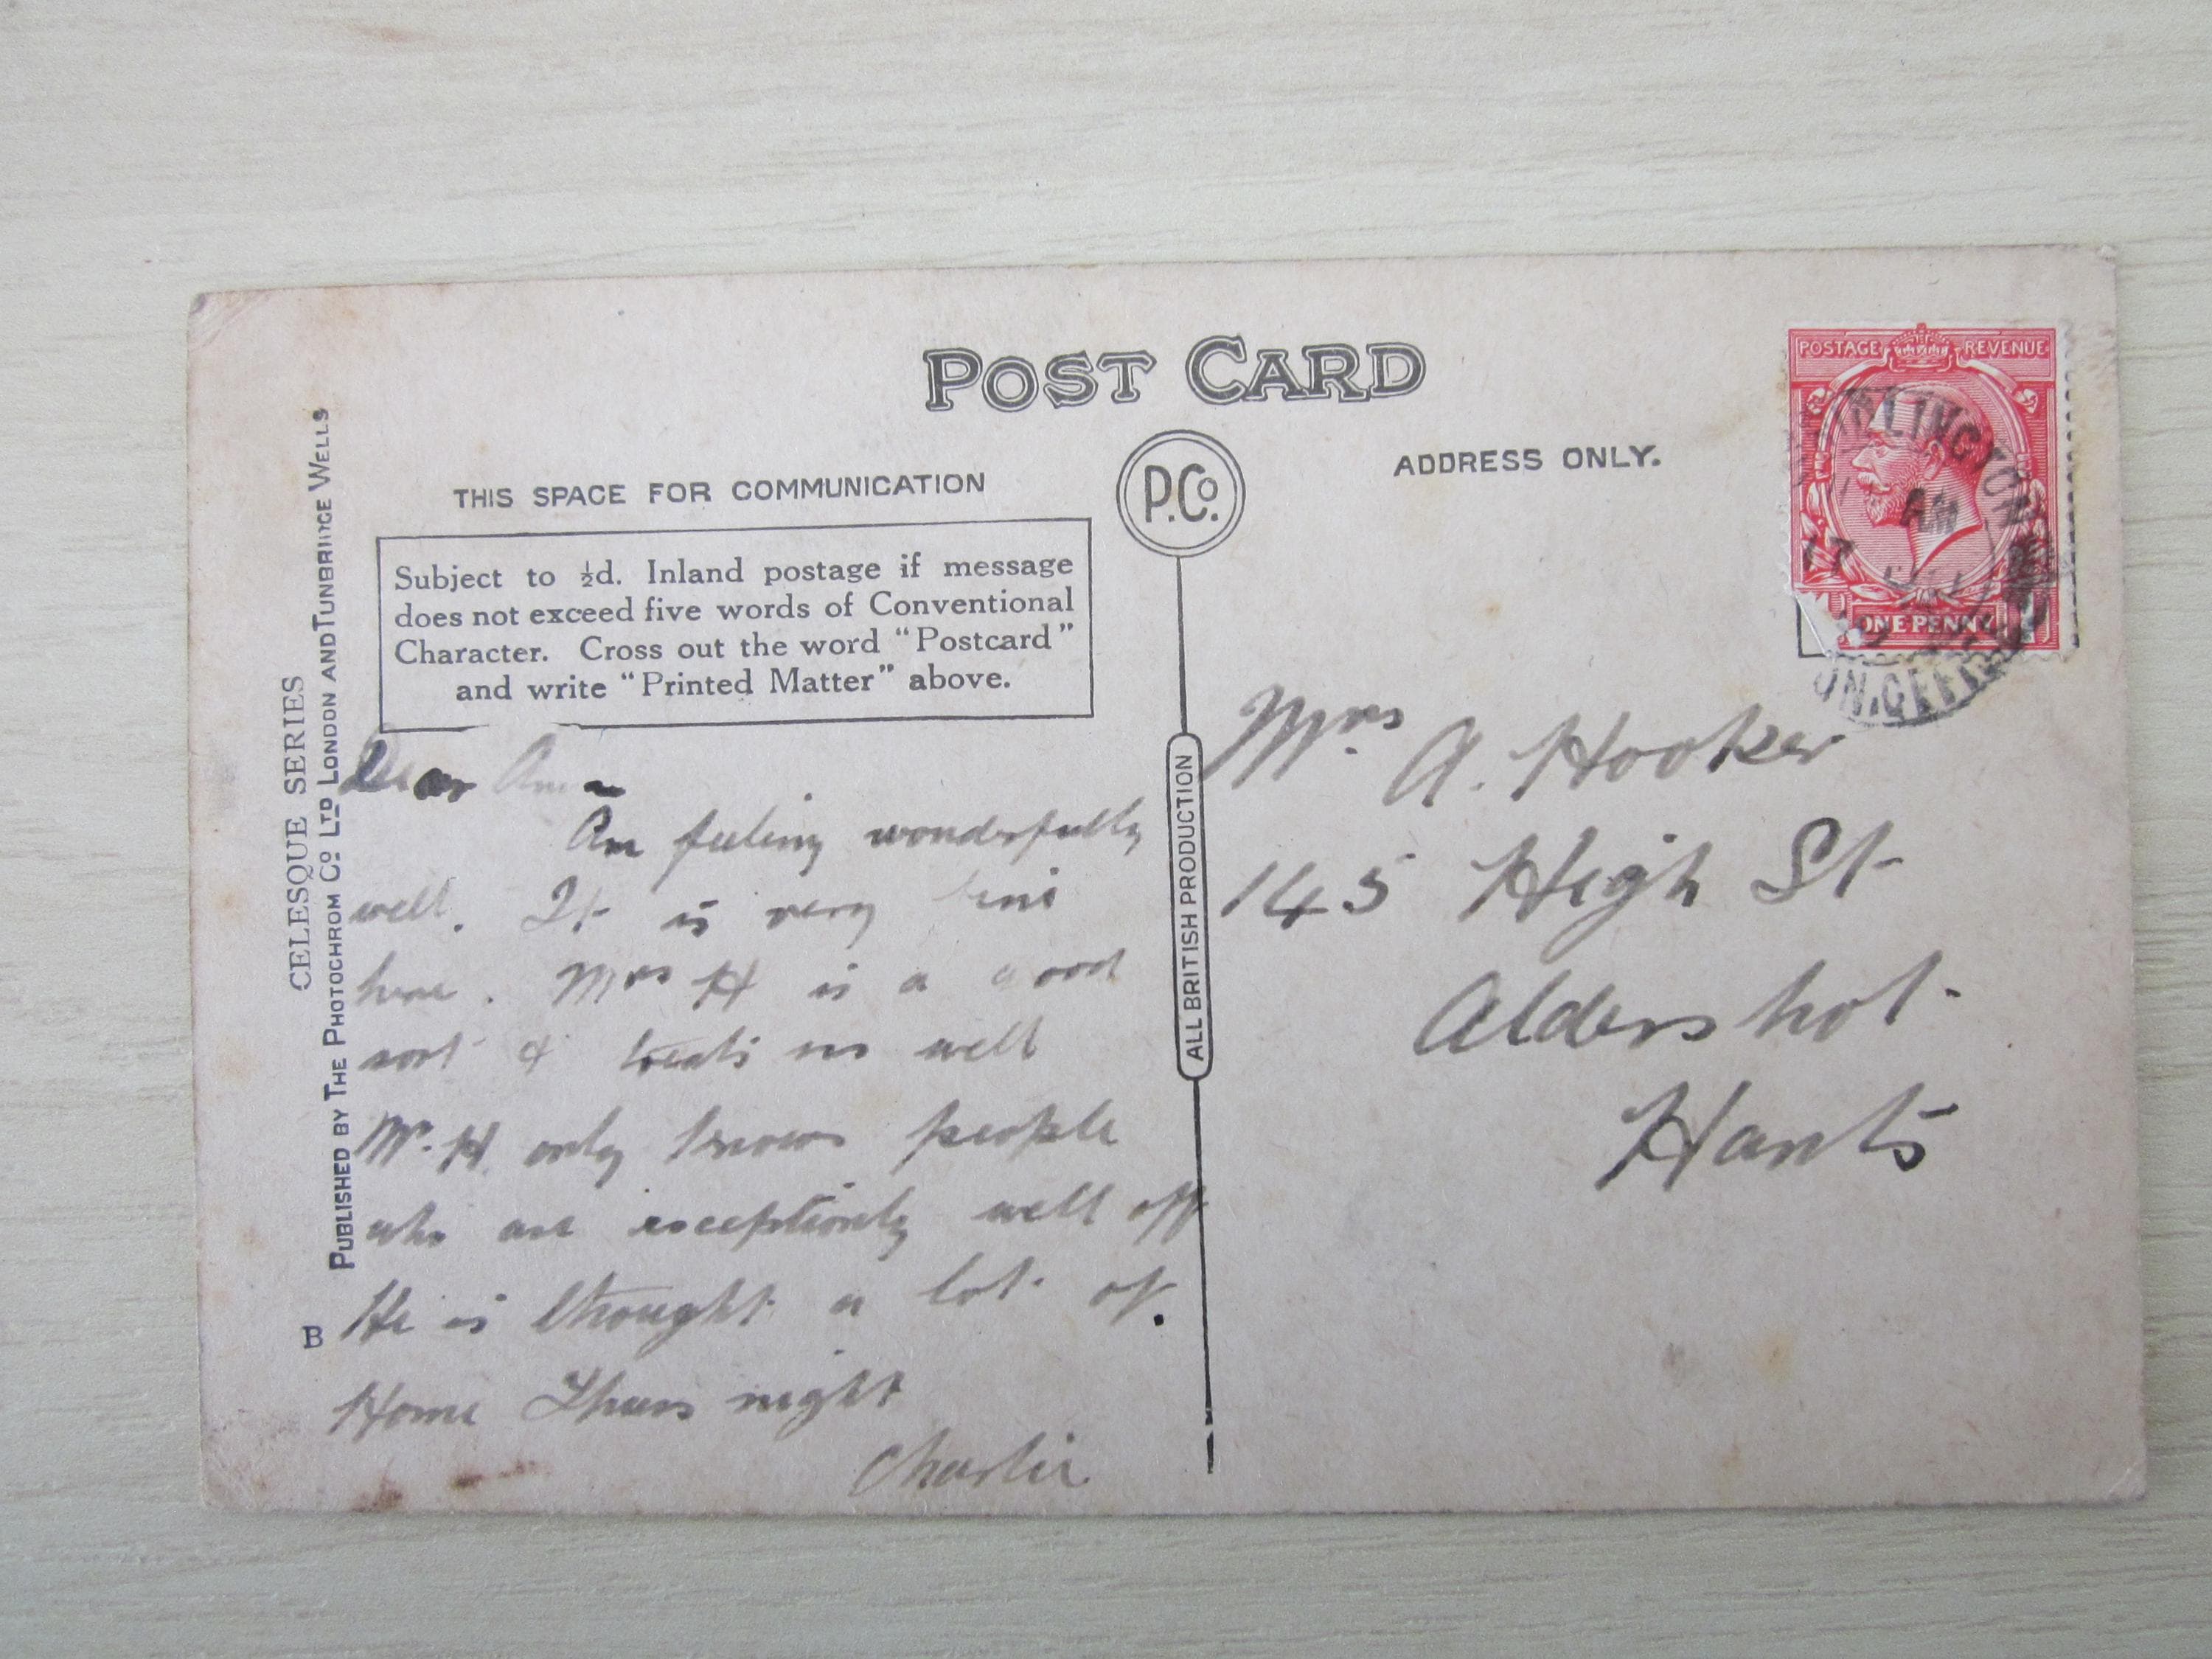 POST CARD
THIS SPACE FOR COMMUNICATION
P.Co.
ADDRESS ONLY.
Subject to ½d. Inland postage if message
does not exceed five words of Conventional
Character. Cross out the word "Postcard"
and write "Printed Matter" above.
CELESQUE SERIES
PUBLISHED BY THE PHOTOCHROM Co LTD LONDON AND TUNBRIDGE WELLS
B
ALL BRITISH PRODUCTION
POSTAGE REVENUE
ONE PENNY
AM
17
Dear
Am feeling wonderfully
well. It is very
here. Mrs H is a good
sort & treats us well
Mr. H. only knows people
who are exceptionly well off
He is thought a lot of.
Home Thurs night
Charlie
Mrs A. Hooker
145 High St
Aldershot
Hants